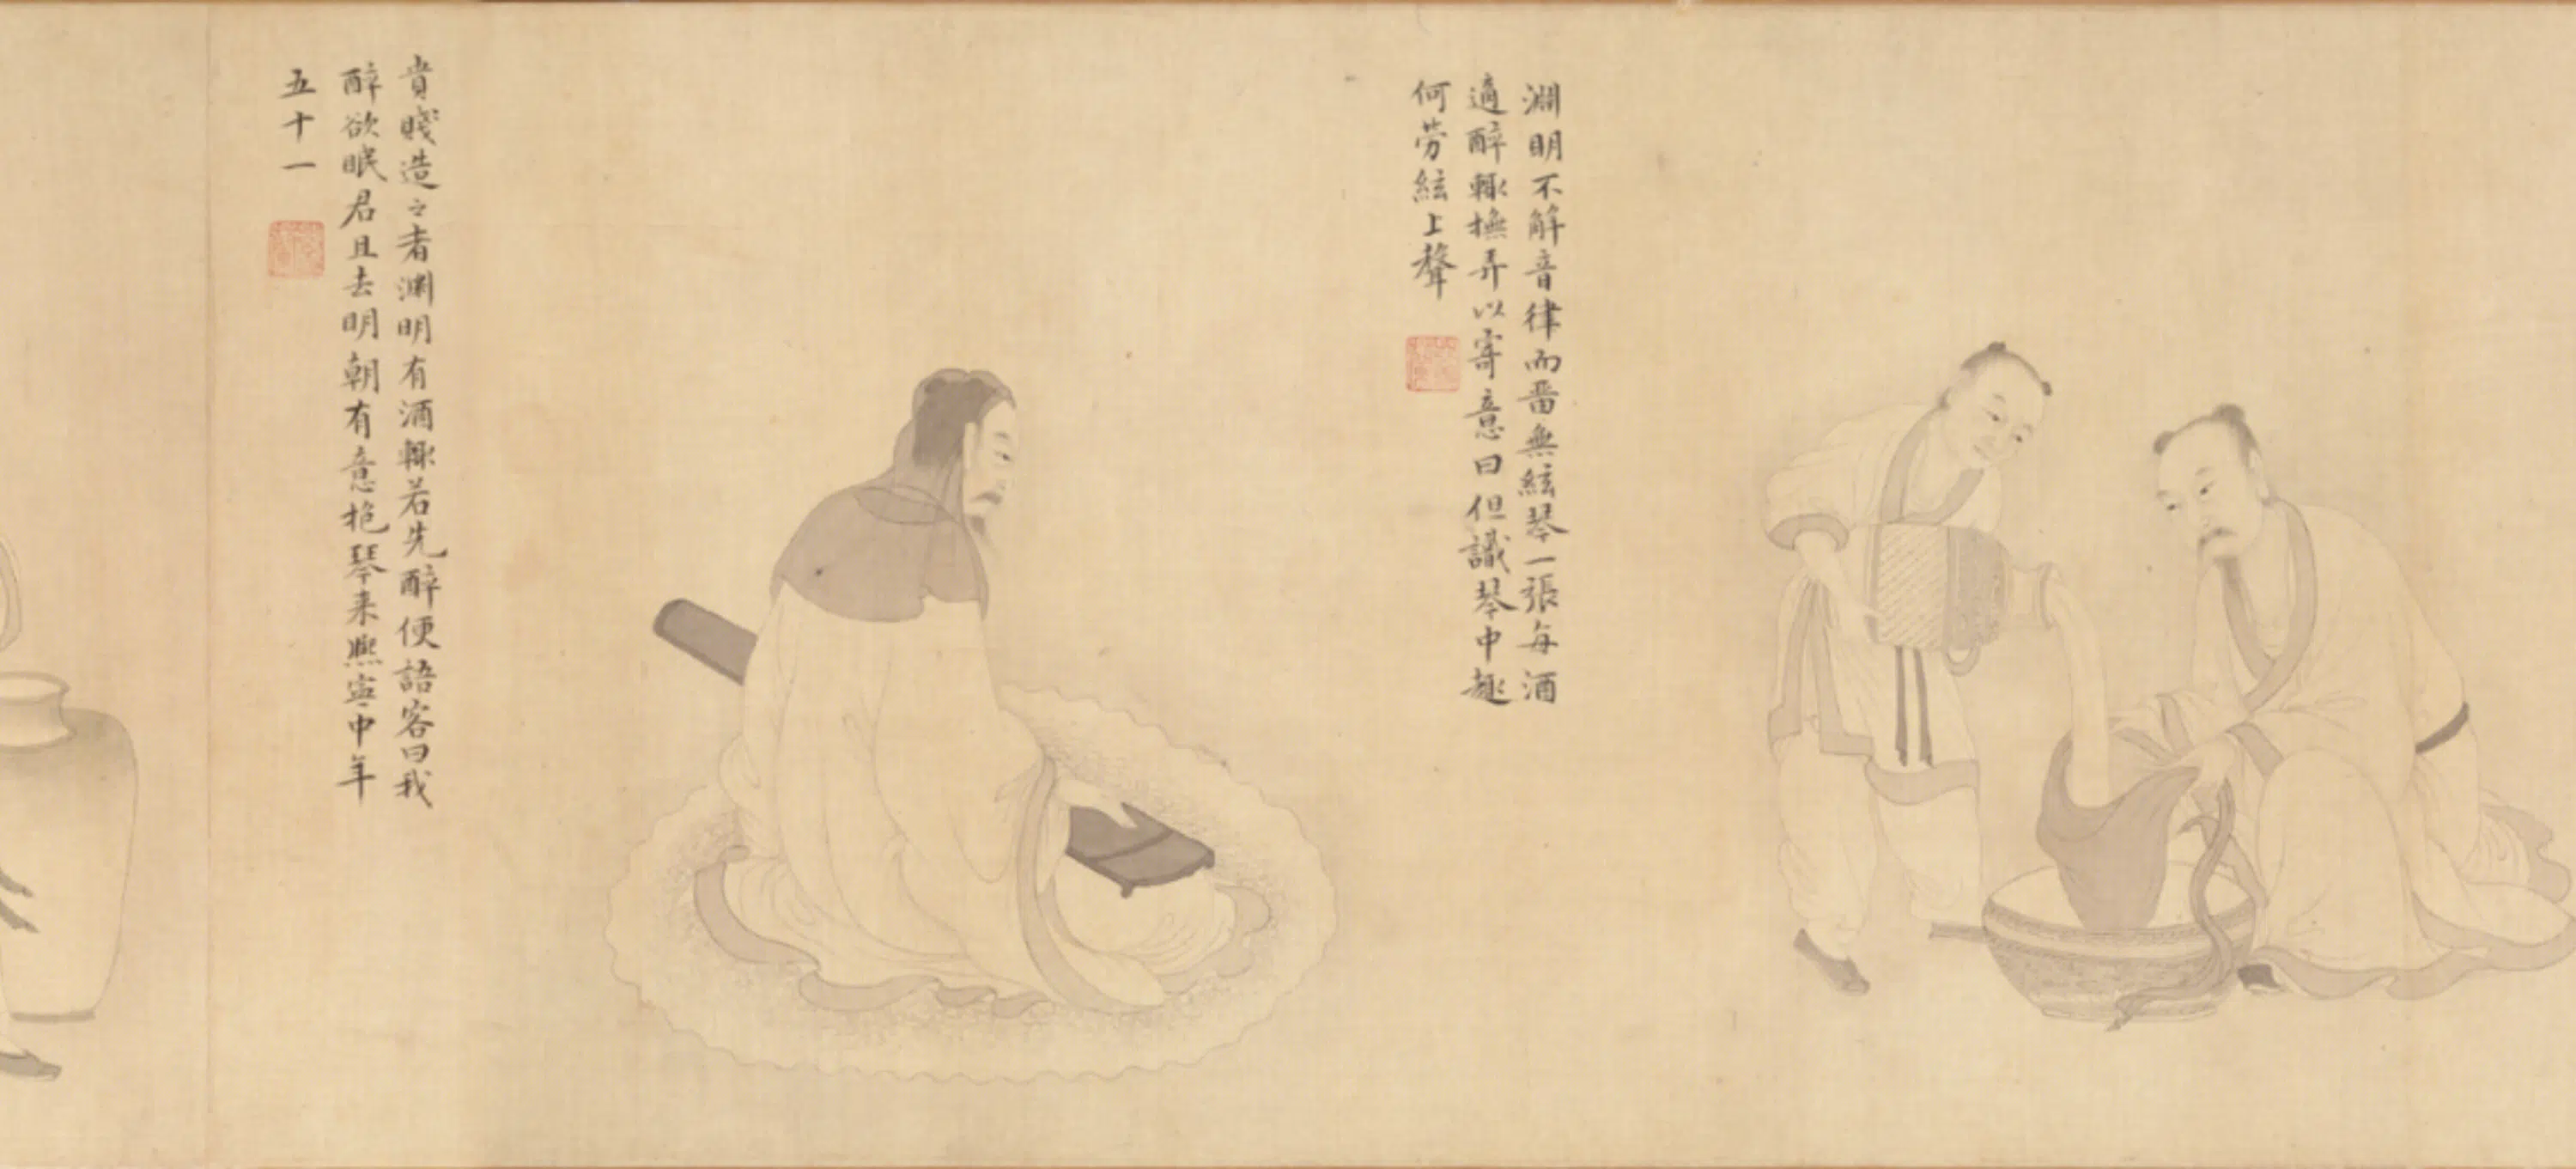 淵明不解音律而畜無絃琴一張每酒
適醉輙撫弄以寄意曰但識琴中趣
何勞絃上聲
貴賤造之者淵明有酒輙若先醉便語客曰我
醉欲眠君且去明朝有意抱琴来熈寧中年
五十一